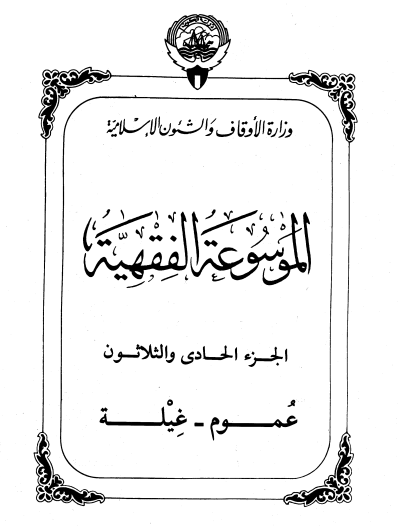 وزارة الأوقاف والشئون الإسلامية
الموسوعة الفقهية
الجزء الحادى والثلاثون
عُمـــوم - غِيْلــــة